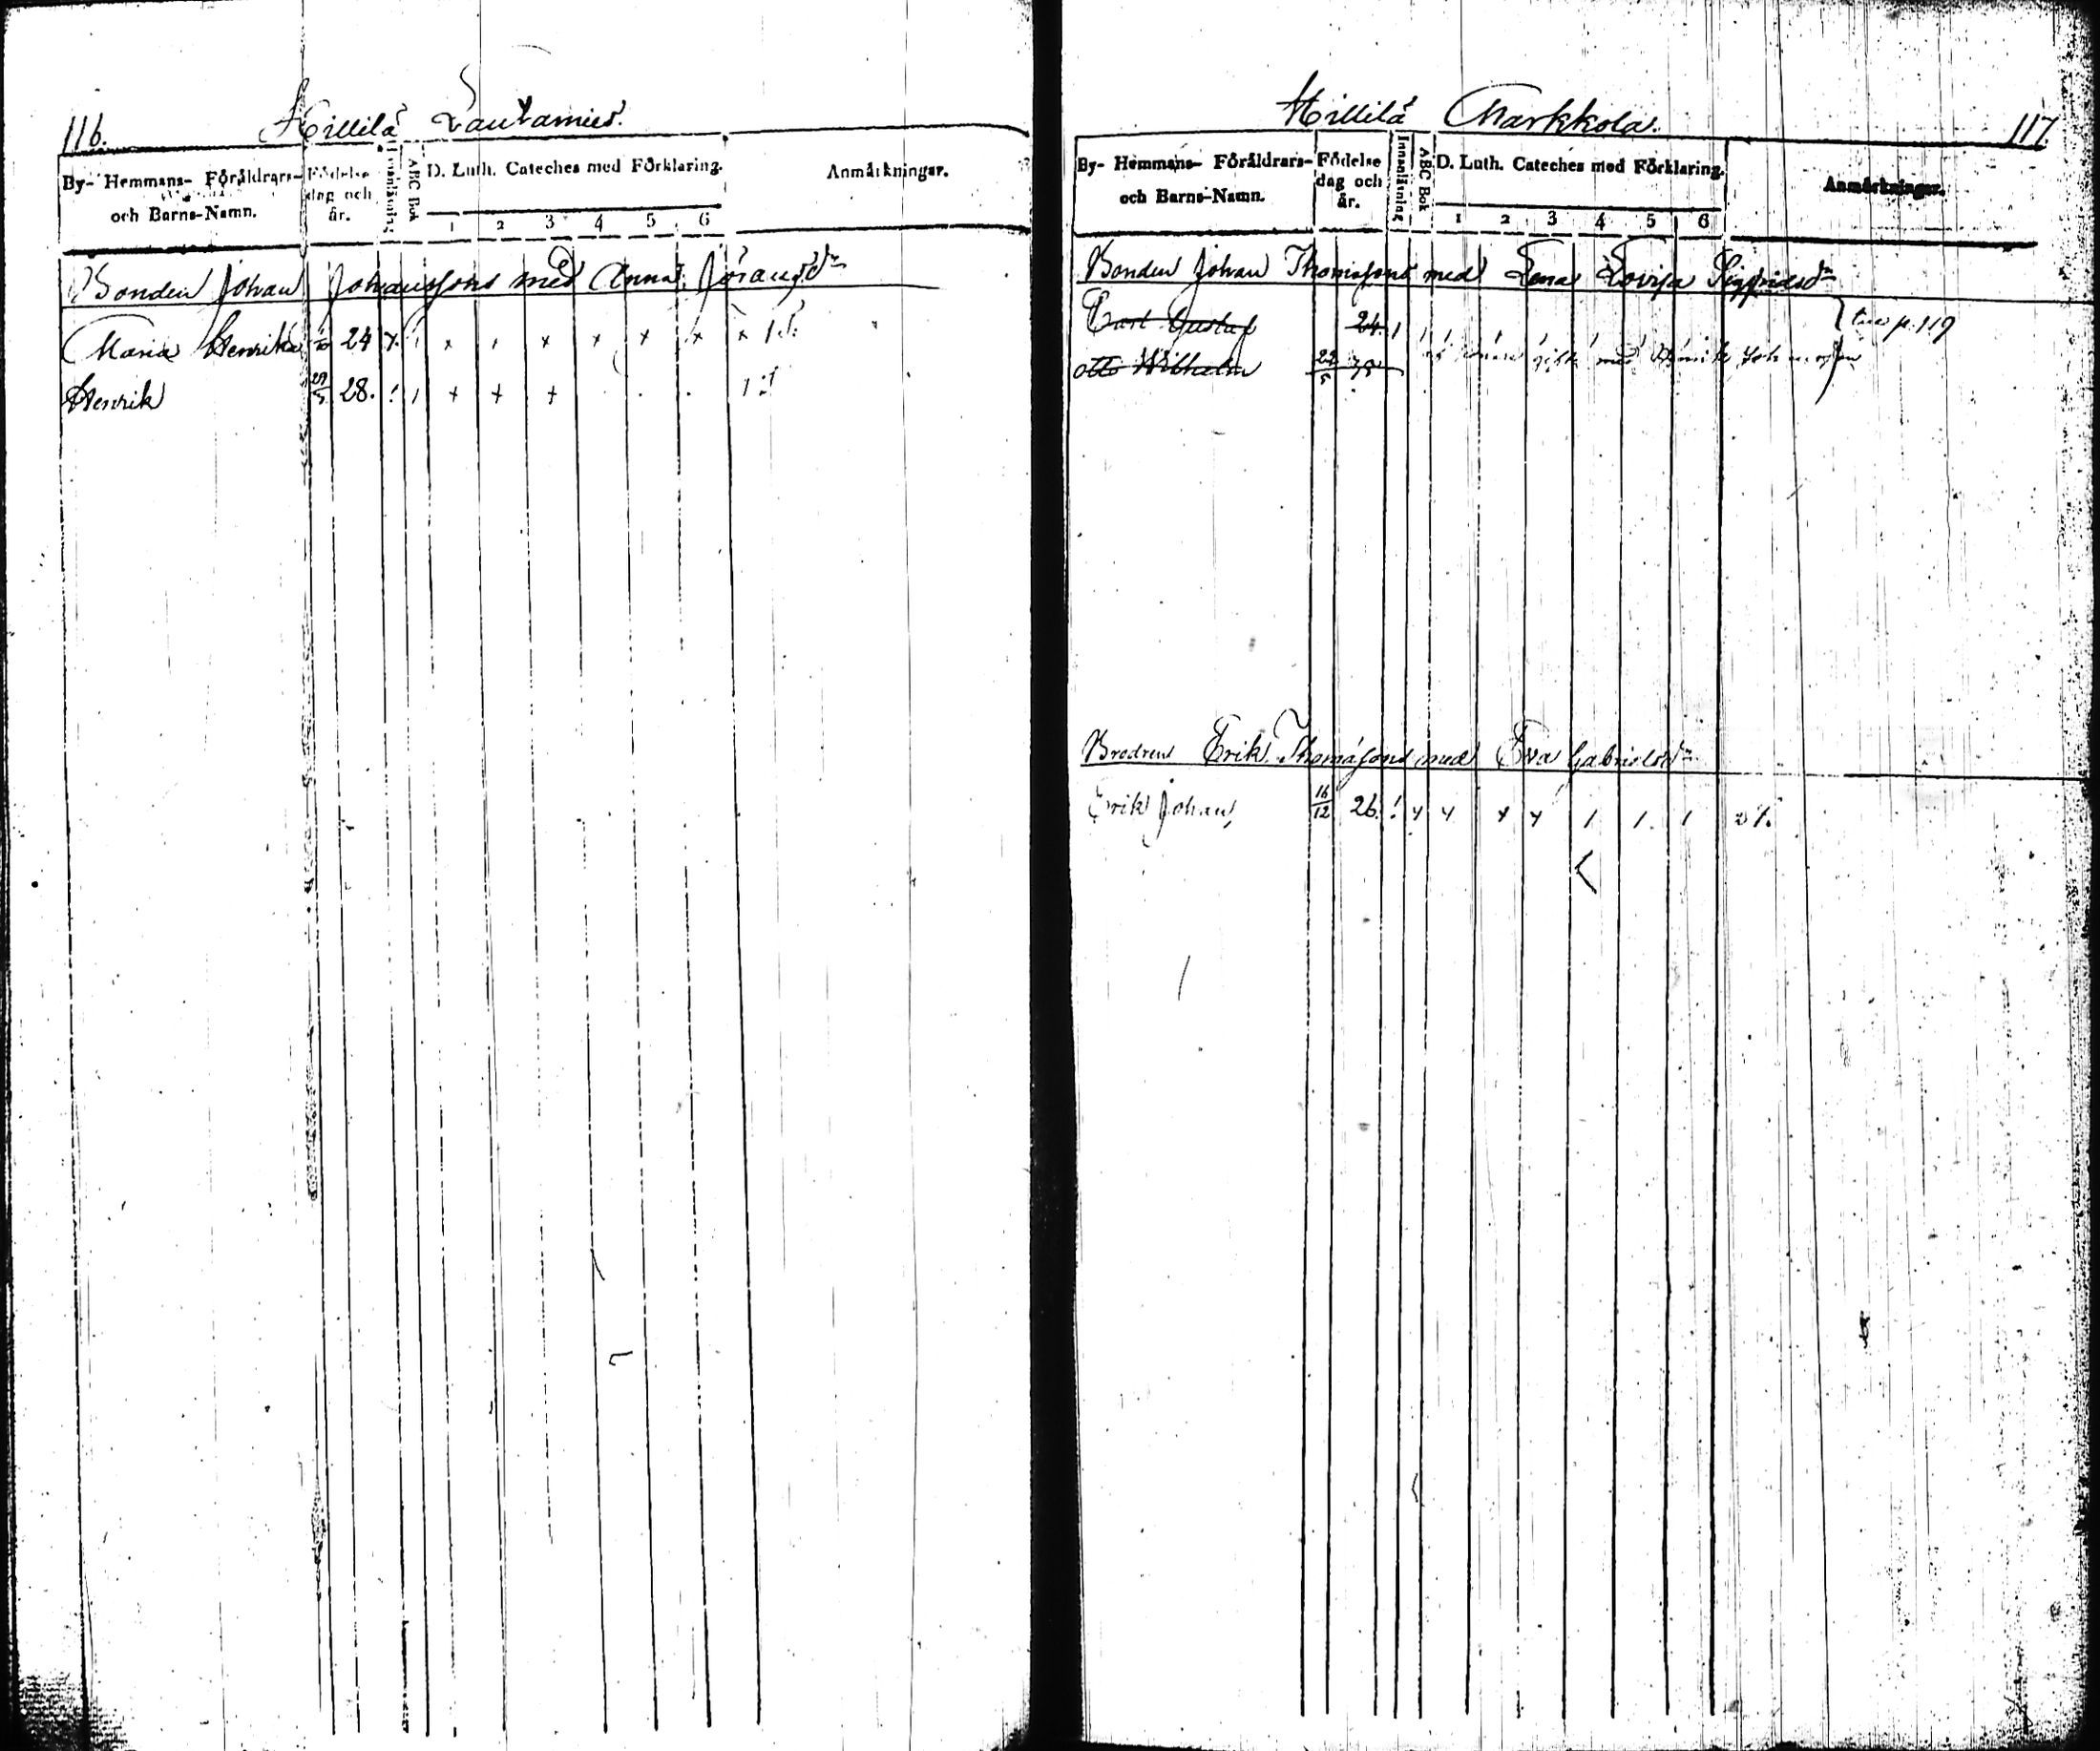 116.
Hillilä Lautamies.
By- Hemmans- Föräldrars- och Barns-Namn. Födelse dag och år. Innanläsning ABC Bok D. Luth. Cateches med Förklaring. Anmärkningar.
1 2 3 4 5 6
Bonden Johan Johanssons med Anna Jöransdr
Maria Henrika 24 x 1 x 1 x x x x x
Henrik 29/5 28. ! 1 x x x
117.
Hillilä Markkola.
By- Hemmans- Föräldrars- och Barns-Namn. Födelse dag och år. Innanläsning ABC Bok D. Luth. Cateches med Förklaring. Anmärkningar.
1 2 3 4 5 6
Bonden Johan Thomassons med Lena Lovisa Sigfridsdr
Carl Gustaf 24. 1 p. 119
Otto Wilhelm gift med Henrik Johansson
Brodren Erik Thomasons med Eva Gabrielsdr
Erik Johan, 16/12 26. ! y y x y 1 1 1